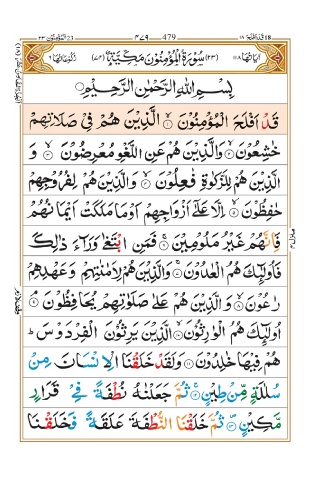 قد افلح ١٨ ٤٧٩ 479 المؤمنون ٢٣
اٰیاتها ١١٨ (٢٣) سُوْرَةُ الْمُؤْمِنُوْنَ مَكِّيَّةٌ (٧٤) رُكُوْعَاتُهَا ٦
بِسْمِ اللّٰهِ الرَّحْمٰنِ الرَّحِيْمِ
قَدْ اَفْلَحَ الْمُؤْمِنُوْنَ ۙ۱ الَّذِيْنَ هُمْ فِيْ صَلَاتِهِمْ
خٰشِعُوْنَ ۙ۲ وَالَّذِيْنَ هُمْ عَنِ اللَّغْوِ مُعْرِضُوْنَ ۙ۳ وَ
الَّذِيْنَ هُمْ لِلزَّكٰوةِ فٰعِلُوْنَ ۙ۴ وَالَّذِيْنَ هُمْ لِفُرُوْجِهِمْ
حٰفِظُوْنَ ۙ۵ اِلَّا عَلٰٓى اَزْوَاجِهِمْ اَوْ مَا مَلَكَتْ اَيْمَانُهُمْ
فَاِنَّهُمْ غَيْرُ مَلُوْمِيْنَ ۚ۶ فَمَنِ ابْتَغٰى وَرَآءَ ذٰلِكَ
فَاُولٰٓئِكَ هُمُ الْعٰدُوْنَ ۚ۷ وَالَّذِيْنَ هُمْ لِاَمٰنٰتِهِمْ وَعَهْدِهِمْ
رٰعُوْنَ ۙ۸ وَالَّذِيْنَ هُمْ عَلٰى صَلَوٰتِهِمْ يُحَافِظُوْنَ ۘ۹
اُولٰٓئِكَ هُمُ الْوٰرِثُوْنَ ۙ۱۰ الَّذِيْنَ يَرِثُوْنَ الْفِرْدَوْسَ ؕ
هُمْ فِيْهَا خٰلِدُوْنَ ۱۱ وَلَقَدْ خَلَقْنَا الْاِنْسَانَ مِنْ
سُلٰلَةٍ مِّنْ طِيْنٍ ۚ۱۲ ثُمَّ جَعَلْنٰهُ نُطْفَةً فِيْ قَرَارٍ
مَّكِيْنٍ ۪۱۳ ثُمَّ خَلَقْنَا النُّطْفَةَ عَلَقَةً فَخَلَقْنَا